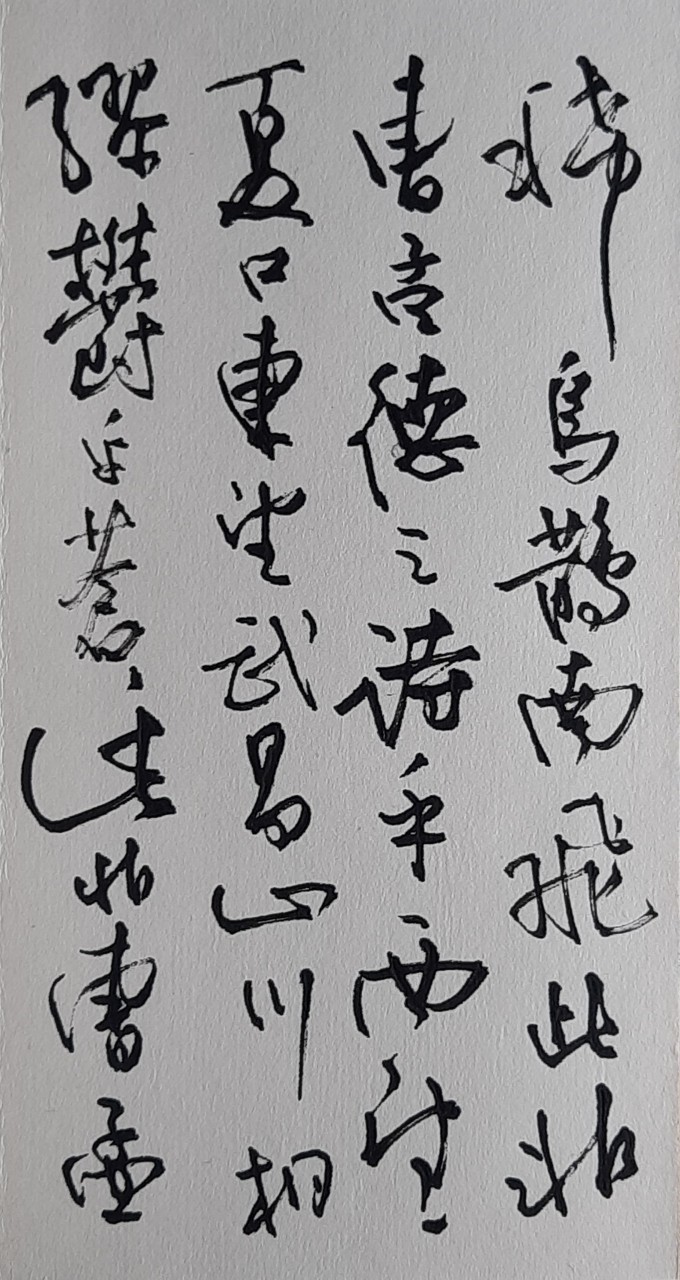 稀烏鵲南飛此非
曹孟德之詩乎西望
夏口東望武昌山川相
繆鬱乎蒼〻此非曹孟